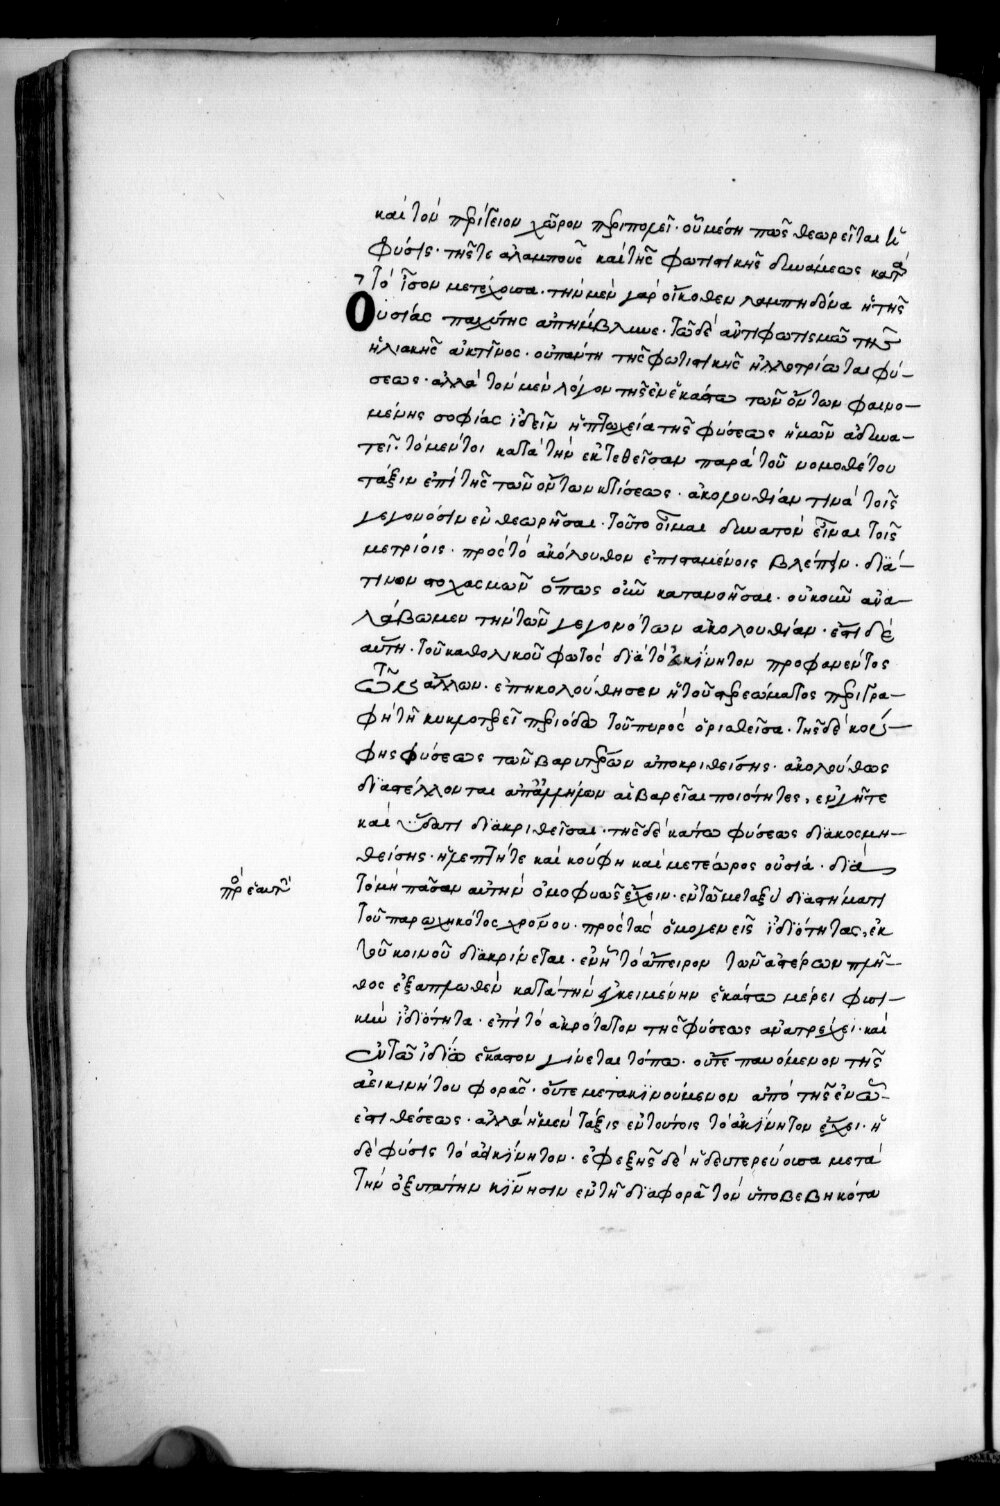 καὶ τὸν περίγειον χῶρον περιπολεῖ· οὐ μέση πως θεωρεῖται ἡ
φύσις· τῆς τε ἀλαμποῦς καὶ τῆς φωτιστικῆς δυνάμεως κατὰ
τὸ ἴσον μετέχουσα· τὴν μὲν γὰρ οἴκοθεν λαμπηδόνα ἡ τῆς
οὐσίας παχύτης ἀπήμβλυνε· τῶ δὲ ἀντιφωτισμῶ τῆς
ἡλιακῆς ἀκτῖνος· οὐ πάντη τῆς φωτιστικῆς ἠλλοτρίωται φύ-
σεως· ἀλλὰ τὸν μὲν λόγον τῆς ἐν ἑκάστω τῶν ὄντων φαινο-
μένης σοφίας ἰδεῖν ἡ πτωχεία τῆς φύσεως ἡμῶν ἀδυνα-
τεῖ· τὸ μέντοι κατὰ τὴν ἐκτεθεῖσαν παρὰ τοῦ νομοθέτου
τάξιν ἐπὶ τῆς τῶν ὄντων κτίσεως· ἀκολουθίαν τινὰ τοῖς
γεγονόσιν ἐνθεωρῆσαι· τοῦτο οἶμαι δυνατὸν εἶναι τοῖς
μετρίοις· πρὸς τὸ ἀκόλουθον ἐπισταμένοις βλέπειν· διά
τινων στοχασμῶν ὅπως οὖν κατανοῆσαι· οὐκοῦν ἀνα-
λάβωμεν τὴν τῶν γεγονότων ἀκολουθίαν· ἔστι δὲ
αὕτη· τοῦ καθολικοῦ φωτὸς διὰ τὸ εὐκίνητον προφανέντος
τῶν ἄλλων· ἐπηκολούθησεν ἡ τοῦ στερεώματος περιγρα-
φὴ τῆ κυκλοτερεῖ περιόδω τοῦ πυρὸς ὁρισθεῖσα· τῆς δὲ κού-
φης φύσεως τῶν βαρυτέρων ἀποκριθείσης· ἀκολούθως
διαστέλλονται ἀπ' ἀλλήλων αἱ βαρεῖαι ποιότητες, ἐν γῆ τε
καὶ ὕδατι διακριθεῖσαι· τῆς δὲ κάτω φύσεως διακοσμη-
θείσης· ἡ λεπτή τε καὶ κούφη καὶ μετέωρος οὐσία· διὰ
τὸ μὴ πᾶσαν αὐτὴν ὁμοφυῶς ἔχειν· ἐν τῶ μεταξὺ διαστήματι
τοῦ παρωχηκότος χρόνου· πρὸς τὰς ὁμογενεῖς ἰδιότητας, ἐκ
τοῦ κοινοῦ διακρίνεται· ἐν ἧ τὸ ἄπειρον τῶν ἀστέρων πλῆ-
θος ἐξαπλωθὲν κατὰ τὴν ἐγκειμένην ἑκάστω μέρει φυσι-
κὴν ἰδιότητα· ἐπὶ τὸ ἀκρότατον τῆς φύσεως ἀνατρέχει· καὶ
ἐν τῶ ἰδίω ἕκαστον γίνεται τόπω· οὔτε παυόμενον τῆς
ἀεικινήτου φορᾶς· οὔτε μετακινούμενον ἀπὸ τῆς ἐν ὧ
ἐστι θέσεως· ἀλλὰ ἡ μὲν τάξις ἐν τούτοις τὸ ἀκίνητον ἔχει· ἡ
δὲ φύσις τὸ ἀεικίνητον· ἐφεξῆς δὲ ἡ δευτερεύουσα μετὰ
τὴν ὀξυτάτην κίνησιν ἐν τῆ διαφορᾶ τὸν ὑποβεβηκότα